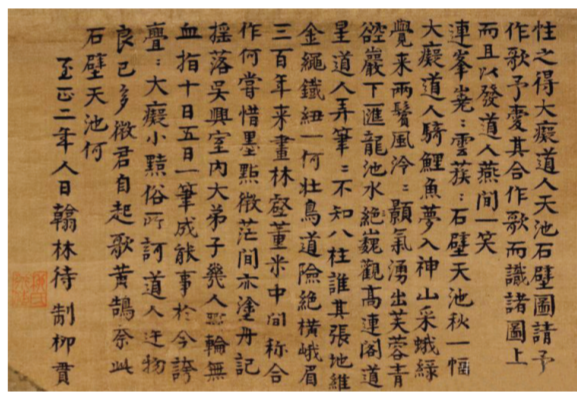 性之得大癡道人天池石壁圖請予
作歌予愛其合作歌而識諸圖上
而且以發道人燕间一笑
連峯 雲蔟石壁天池秋一幅
大癡道人騎鯉魚夢入神山采蛾綠
覺来兩鬢風泠顥氣湧出芙蓉青
巖下匯龍池水絕巍觀高連閣道
星道人弄筆 不知八柱誰其張地維
金繩鐵紐一何壯鳥道險絕橫峨眉
三百年来畫林壑董米中間称合
作何嘗惜墨點微茫間亦塗丹記
揺落吳興室内大弟子幾人 輪無
血指十日五日一筆成能事於今誇
亹大癡小黠俗所訶道人迕物
良已多徵君自起歌黃鵠奈此
石壁天池何
至正二年人日翰林待制柳貫